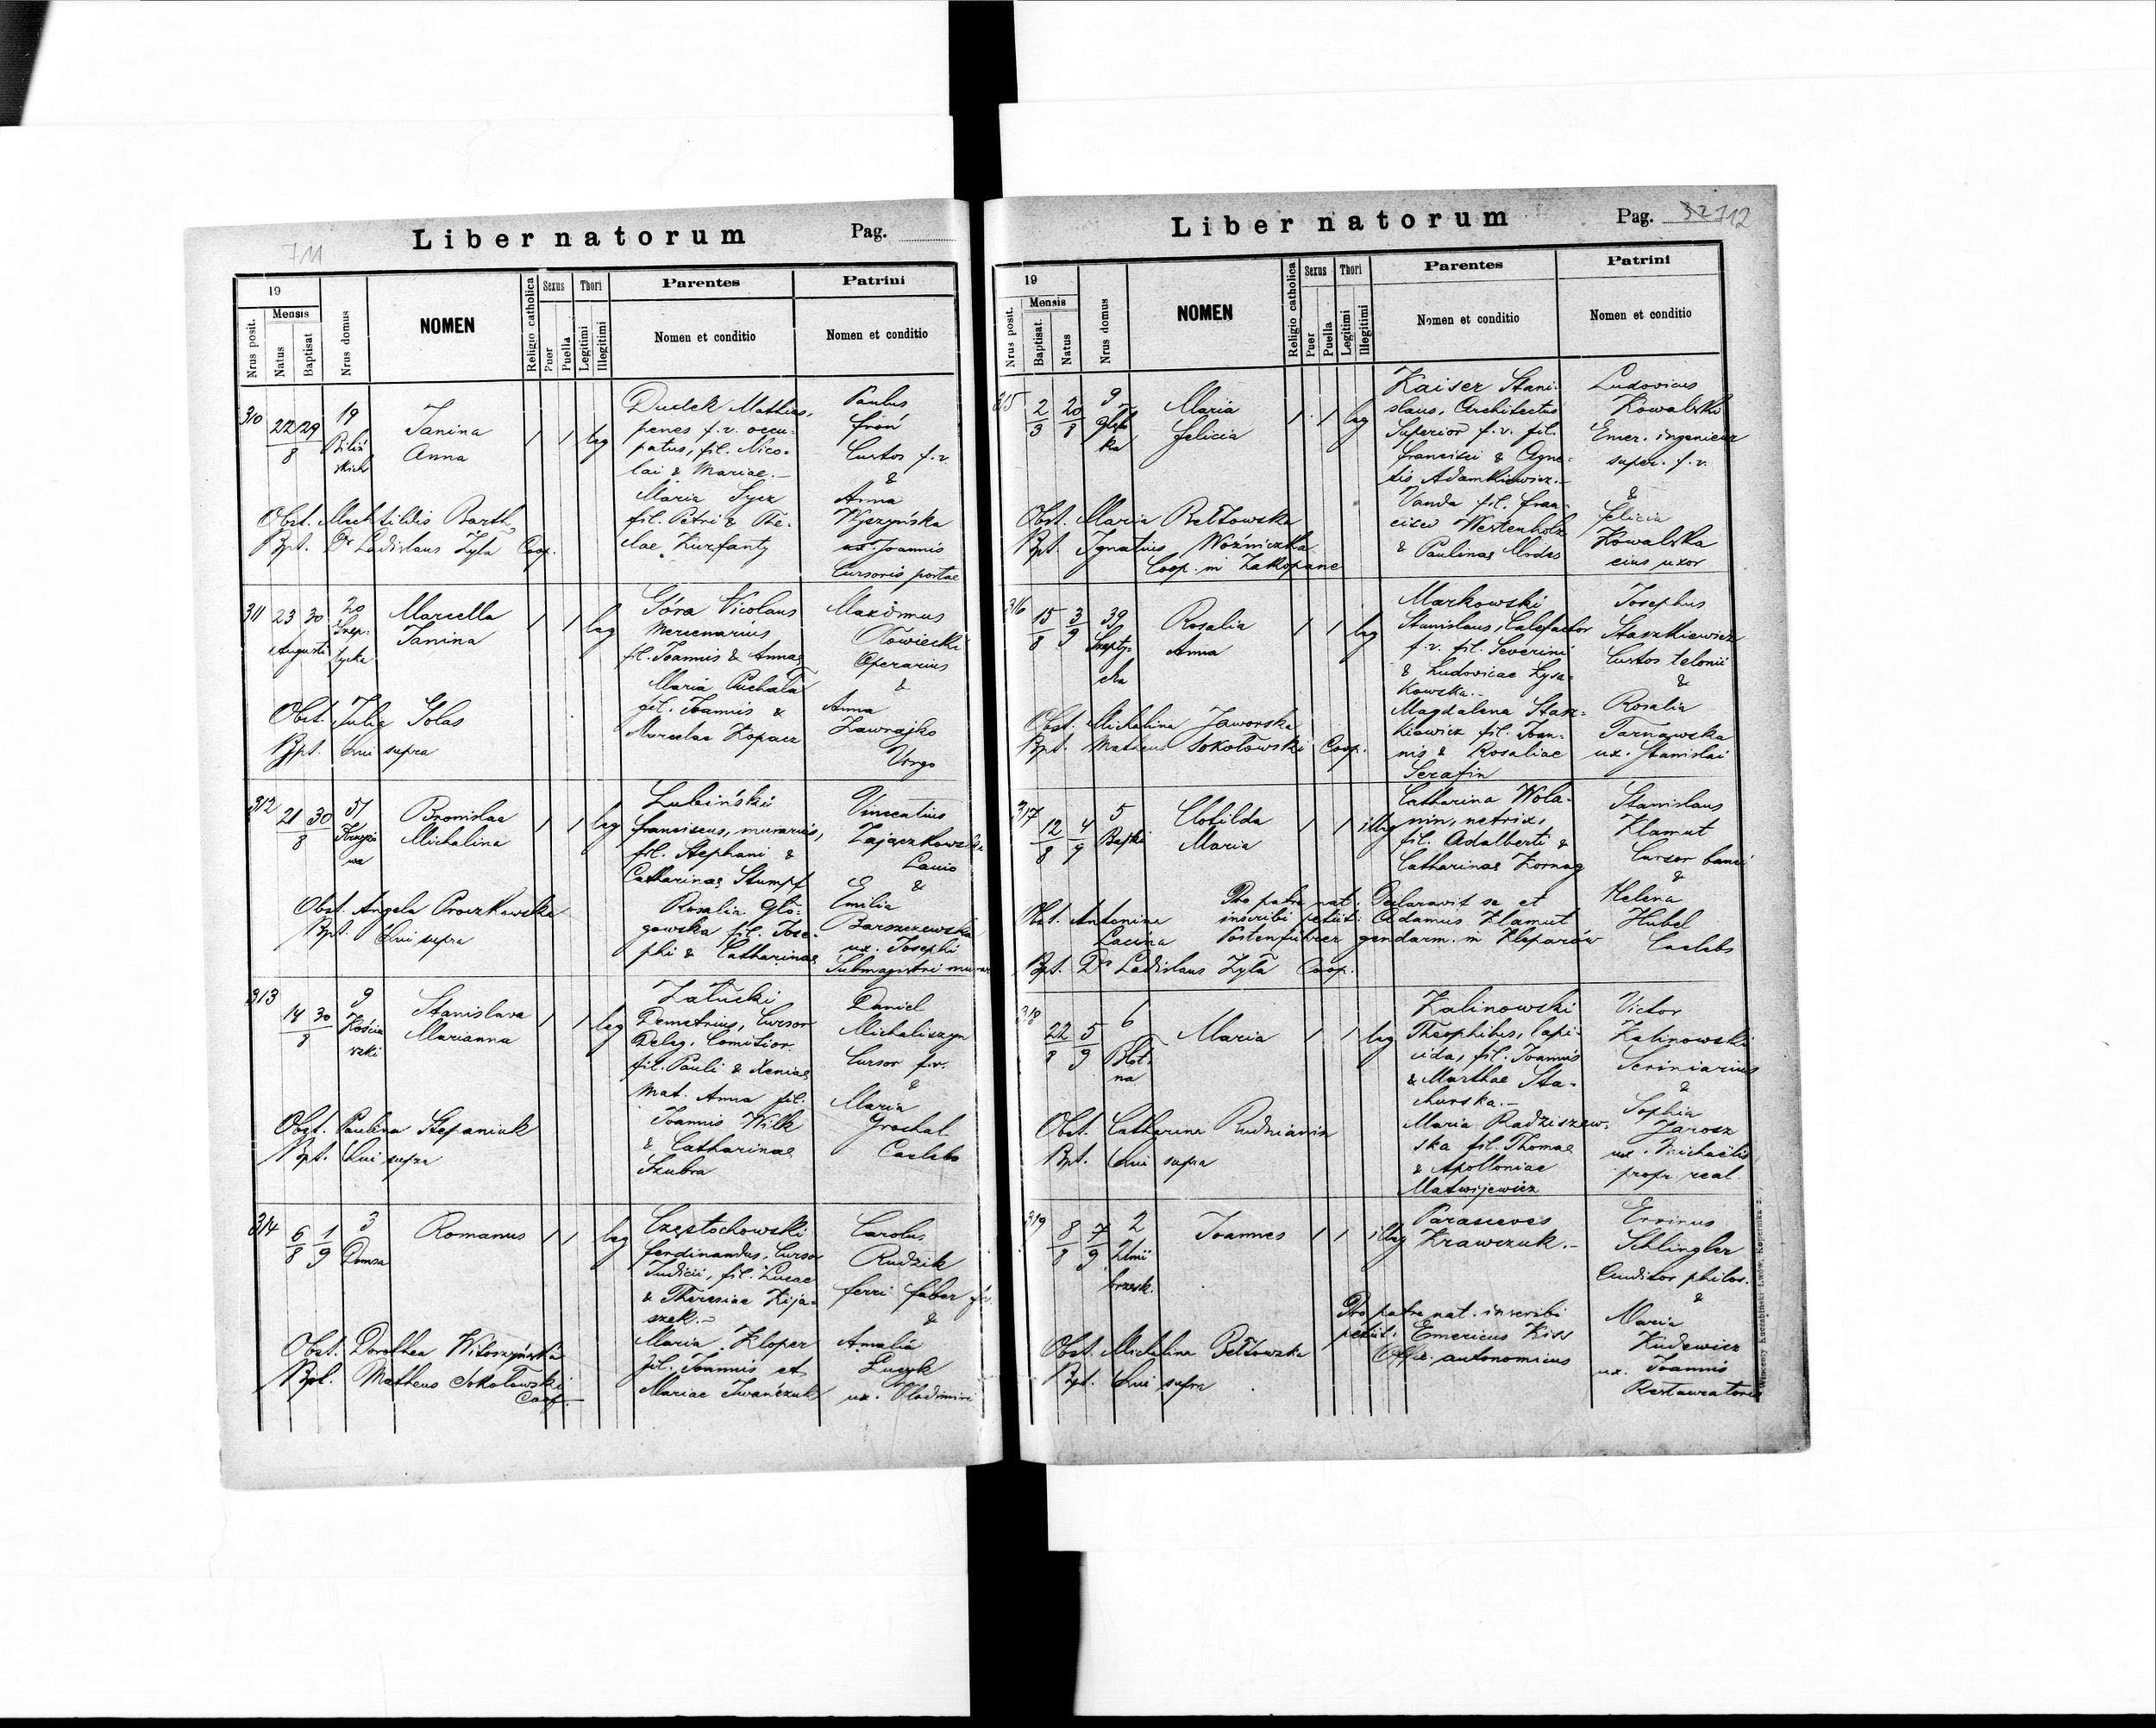 711
Liber natorum
Pag.
19
Mensis
Nrus posit.
Natus
Baptisat
Nrus domus
NOMEN
Religio catholica
Sexus
Puer
Puella
Thori
Legitimi
Illegitimi
Parentes
Nomen et conditio
Patrini
Nomen et conditio
310
22 29
8
19
Biliń
skich
Janina
Anna
1 1 leg
Dudek Mathias,
penes f.v. occu-
patus, fil. Nico-
lai & Mariae.-
Maria Sycz
fil. Petri & The-
clae Kurfanty
Paulus
Froń
Custos f.v.
&
Anna
Wyczyńska
ux. Joannis
Cursoris postae
Obst. Mechtildis Barth
Bpt. Dr Ladislaus Zyla Coop.
311
23 30
Augusti
20
Szep-
tycka
Marcella
Janina
1 1 leg
Góra Nicolaus
mercenarius
fil. Joannis & Annae
Maria Puchała
fil. Joannis &
Marcelae Kopacz
Maximus
Nowiecki
Operarius
&
Anna
Zawrajko
Virgo
Obst. Julia Golas
Bpt. Qui supra
312
21 30
8
51
Bronislae
Michalina
1 1 leg
Lubiński
Franciscus, murarius,
fil. Stephani &
Catharinae Stumpf
Rosalia Gło-
gowska fil. Jose-
phi & Catharinae
Vincentius
Zajączkowski
Lanio
&
Emilia
Barszczewska
ux. Josephi
Submagistri murar
Obst. Angela Proczkowska
Bpt. Qui supra
313
14 30
8
9
Kościu
szki
Stanislava
Marianna
1 1 leg
Załucki
Demetrius, Cursor
Deleg. Comitior.
fil. Pauli & Xeniae
Mat. Anna fil.
Joannis Wilk
& Catharinae
Szubra
Daniel
Michaliszyn
Cursor f.v.
&
Maria
Grochal
Caelebs
Obst. Paulina Stepaniuk
Bpt. Qui supra
314
6 1
8 9
3
Domsa
Romanus
1 1 leg
Częstochowski
Ferdinandus, Cursor
Judicii, fil. Lucae
& Theresiae Kija-
szek.-
Maria Kloper
fil. Joannis et
Mariae Iwańczuk
Carolus
Rudzik
ferri faber f.v.
&
Amalia
Łucyk
ux. Vladimiri
Obst. Dorothea Witoszyńska
Bpt. Matheus Sokołowski
Coop.
Liber natorum
Pag. 32 712
19
Mensis
Nrus posit.
Baptisat.
Natus
Nrus domus
NOMEN
Religio catholica
Sexus
Puer
Puella
Thori
Legitimi
Illegitimi
Parentes
Nomen et conditio
Patrini
Nomen et conditio
315
2 20
3 8
9
Głębo
ka
Maria
Felicia
1 1 leg
Kaiser Stani-
slaus, Architectus
Superior f.v. fil.
Francisci & Agne-
tis Adamkiewicz.-
Vanda fil. Fran-
cisci Westenholz
& Paulinae Mrdas
Ludovicus
Kowalski
Emer. ingenieur
super. f.v.
&
Felicia
Kowalska
eius uxor
Obst. Maria Bełtowska
Bpt. Ignatius Woźniczka
Coop. in Zakopane
316
15 3
8 9
39
Szepty-
cka
Rosalia
Anna
1 1 leg
Markowski
Stanislaus, Calefactor
f.v. fil. Severini
& Ludovicae Łysa-
kowska.-
Magdalena Stasz-
kiewicz fil. Joan-
nis & Rosaliae
Serafin
Josephus
Staszkiewicz
Custos telonii
&
Rosalia
Tarnawska
ux. Stanislai
Obst. Michalina Jaworska
Bpt. Matheus Sokołowski Coop.
317
12 4
8 9
5
Bajki
Clotilda
Maria
1 1 illeg
Catharina Wola-
nin, netrix,
fil. Adalberti &
Catharinae Kornag
Stanislaus
Klamut
Cursor banci
&
Helena
Hubel
Caelebs
Pro patre nat. Declaravit se et
inscribi petiit: Adamus Klamut
Postenführer gendarm. in Kleparów
Obst. Antonina
Lacina
Bpt. Dr Ladislaus Zyła Coop.
318
22 5
8 9
6
Błot-
na
Maria
1 1 leg
Kalinowski
Theophilus, lapi-
cida, fil. Joannis
& Marthae Sta-
churska.-
Maria Radziszew-
ska fil. Thomae
& Apolloniae
Matwijewicz
Victor
Kalinowski
Scriniarius
&
Sophia
Jarosz
ux. Michaëlis
propr. real.
Obst. Catharina Rudnianin
Bpt. Qui supra
319
8 7
8 9
2
Joannes
1 1 illeg
Parasceves
Krawczuk.-
Ervinus
Schlingler
Auditor philos.
&
Maria
Kudewicz
ux. Joannis
Restauratoris
Pro patre nat. inscribi
petiit: Emericus Kiss
Offic. autonomicus
Obst. Michalina Bełtowska
Bpt. Qui supra
Wincenty Kuczabiński Lwów, Kopernika 2.